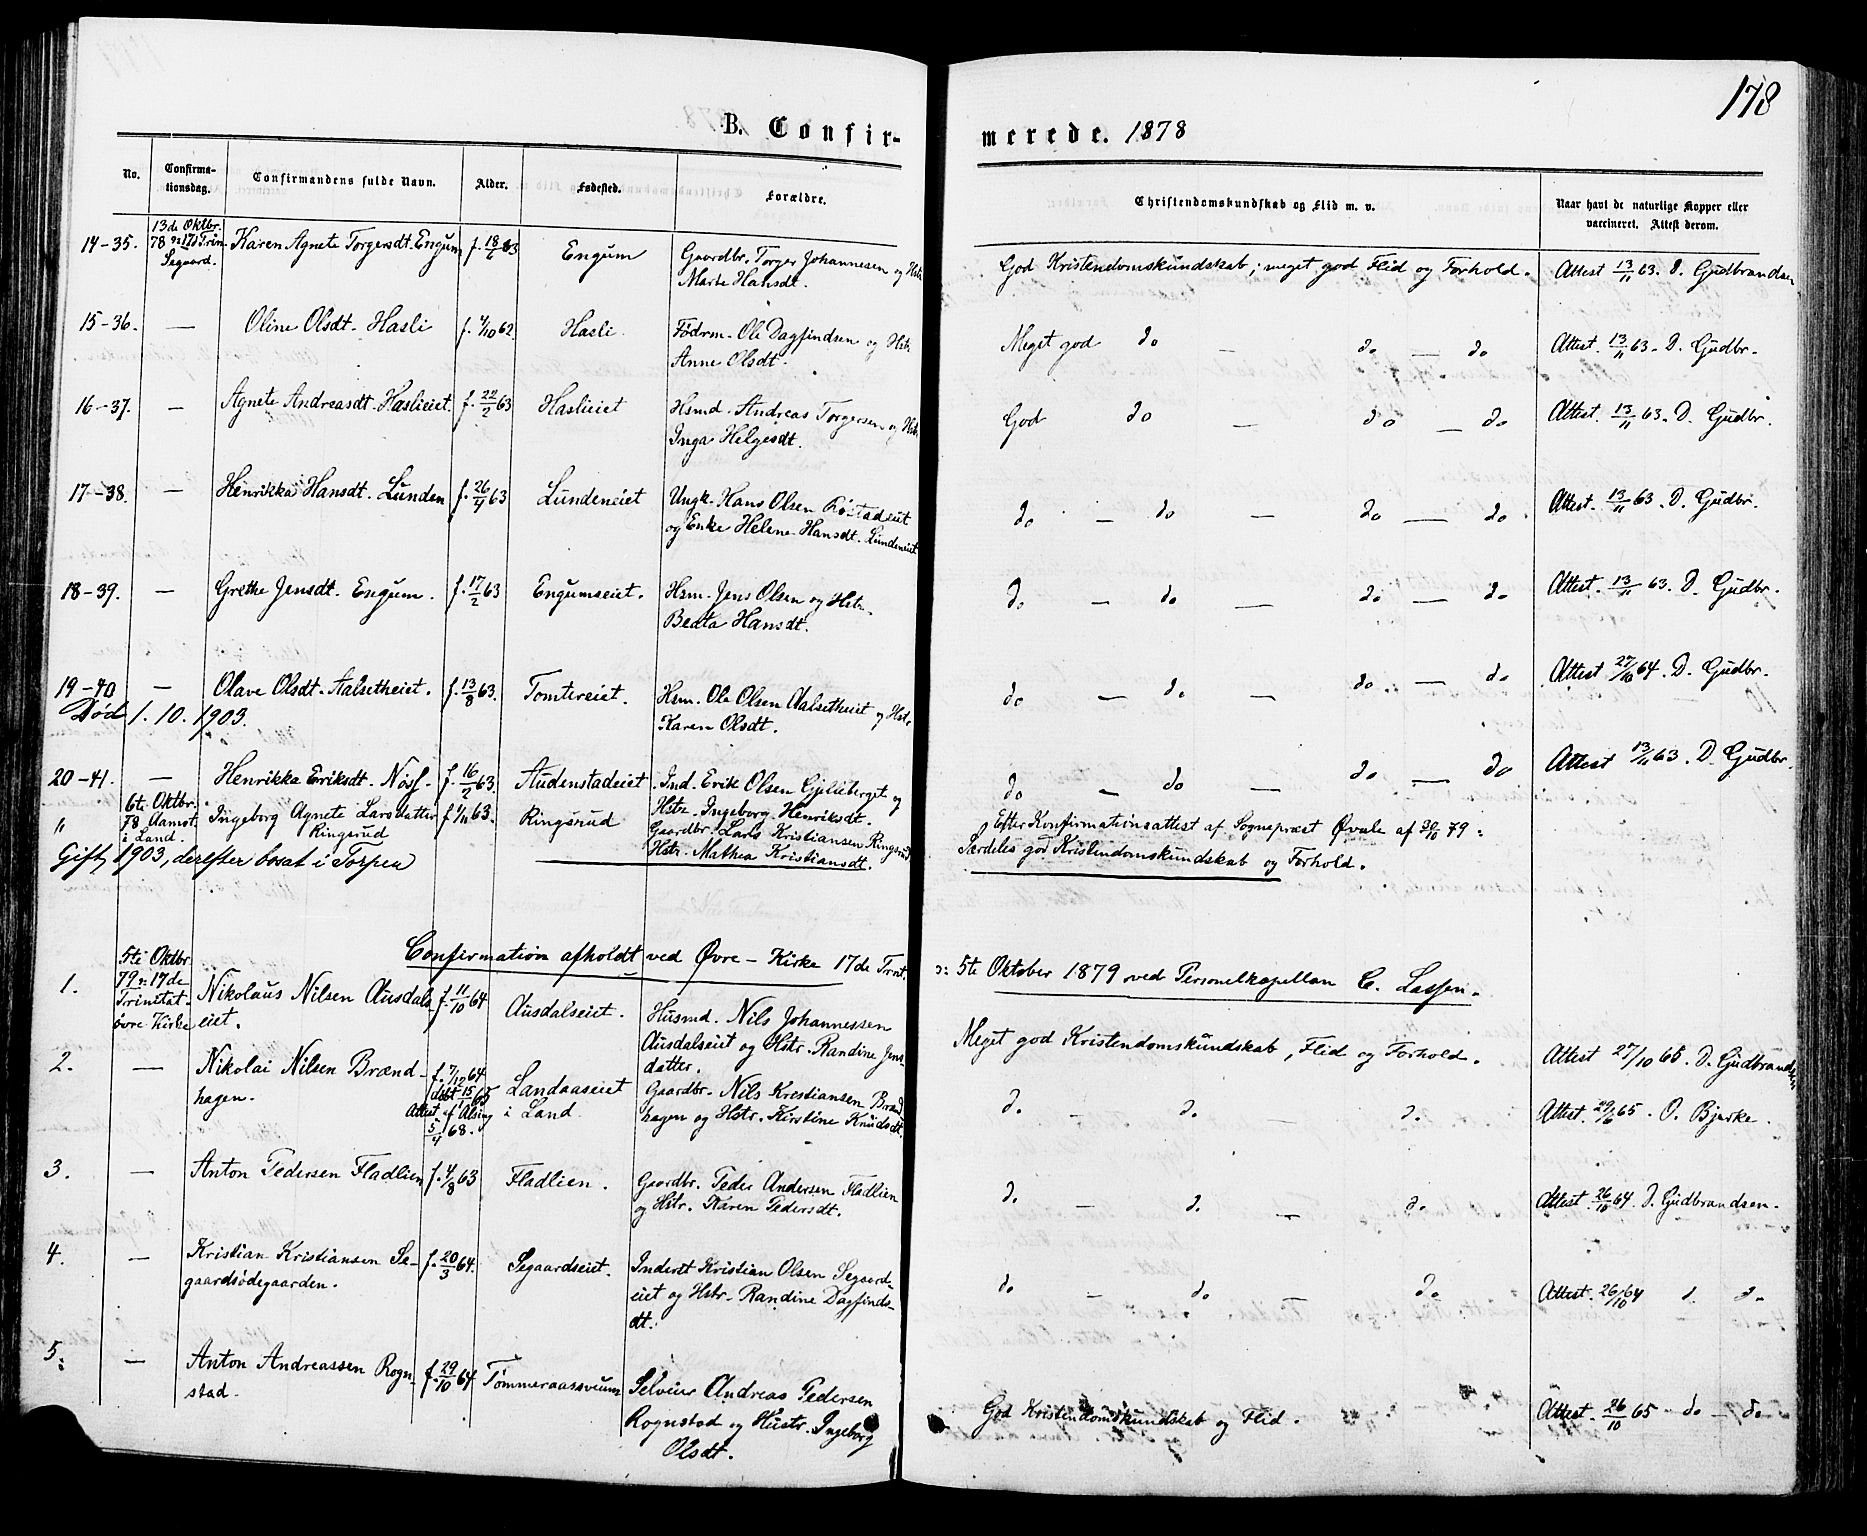 178
B. Confir-
merede. 1878
No.
Confirma-
tionsdag.
Confirmandens fulde Navn.
Alder.
Fødested.
Forældre.
Christendomskundskab og Flid m. v.
Naar havt de naturlige Kopper eller
vaccineret. Attest derom.
14-35.
13de Oktbr.
78 17 s Trin
Segaard.
Karen Agnete Torgersdt. Engum
f. 18/ 63
Engum
Gaardbr. Torger Johannesen og Hstr.
Marte Hansdt.
God Kristendomskundskab; meget god Flid og Forhold.
Attest 13/11 63. D. Gudbrandsen
15-36. —
Oline Olsdt. Hasli
f. 4/10 62
Hasli
Fødrm. Ole Dagfindsen og Hstr.
Anne Olsdt.
Meget god do — do — do
Attest. 13/11 63. D. Gudbr.
16-37. —
Agnete Andreasdt. Haslieiet.
f. 22/2 63
Haslieiet
Hsmd. Andreas Torgersen og Hstr.
Inga Helgesdt.
God do — do — do
Attest. 13/11 63. D. Gudbr.
17-38. —
Henrikka Hansdt. Lunden
f. 26/4 63
Lundeneiet
Ungk. Hans Olsen Røstadeiet
og Enke Helene Hansdt. Lundeneiet
do — do — do — do
Attest. 13/11 63. D. Gudbr.
18-39. —
Grethe Jensdt. Engum.
f. 17/2 63
Engumseiet.
Hsm. Jens Olsen og Hstr.
Beata Hansdt.
do — do — do — do
Attest. 13/11 63. D. Gudbr.
19-40 —
Olave Olsdt. Aalsetheiet.
f. 13/8 63.
Tomtereiet.
Hsm. Ole Olsen Aalsetheiet og Hstr.
Karen Olsdt.
do — do — do — do
Attest 27/10 64. D. Gudbr.
Død 1. 10. 1903.
20-41. —
Henrikka Eriksdt. Nøss.
f. 16/2 63.
Audenstadeiet
Ind. Erik Olsen Gjeliberget og
Hstr. Ingeborg Henriksdt.
do — do — do — do
Attest 13/11 63. D. Gudbr.
"
6te Oktbr.
78 Aamot
i Land.
Ingeborg Agnete Larsdatter
Ringsrud
f 1/11 63.
Ringsrud
Gaardbr. Lars Kristiansen Ringsrud
Hstr. Mathea Kristiansdt.
Efter Konfirmationsattest af Sognepræst Øvale af 30/10 79:
Særdeles god Kristendomskundskab og Forhold.
Gift 1903, derefter bosat i Torpen
Confirmation afholdt ved Øvre-Kirke 17de Trnt.
ɔ: 5te Oktober 1879 ved Personelkapellan C. Lassen.
1.
5te Oktbr
79 17de
Trinitat.
øvre Kirke
Nikolaus Nilsen Ausdals
eiet.
f. 11/10 64
Ausdalseiet.
Husmd. Nils Johannessen
Ausdalseiet og Hstr. Randine Jens-
datter.
Meget god Kristendomskundskab, Flid og Forhold.
Attest 27/10 65. D. Gudbrandsen
2. —
Nikolai Nilsen Brænd-
hagen.
f. 7/12 64
døbt 15/1 65
Attest af Alsing
5/4 68.
Landaaseiet
i Land.
Gaardbr. Nils Kristiansen Brænd
hagen og Hstr. Kirstine Knudsdt.
do. — do. — do.
Attest. 29/6 65. O. Bjerke.
3. —
Anton Pedersen Fladlien
f. 4/8 63
Fladlien.
Gaardbr. Peder Andersen Fladlien
og Hstr. Karen Pedersdt.
do. do. — do.
Attest. 26/10 64. D. Gudbrandsen.
4. —
Kristian Kristiansen Se-
gaardsødegaarden.
f. 20/3 64.
Segaardseiet.
Inderst Kristian Olsen Segaards-
eiet og Hstr. Randine Dagfinds-
dt.
do — do. — do.
Attest. 26/10 64 d. do.
5. —
Anton Andreassen Rogn-
stad.
f. 29/10 64
Tømmeraasveum
Selveier Andreas Pedersen
Rognstad og Hustr. Ingeborg
Olsdt.
God Kristendomskundskab og Flid.
Attest. 26/10 65 — do — do.